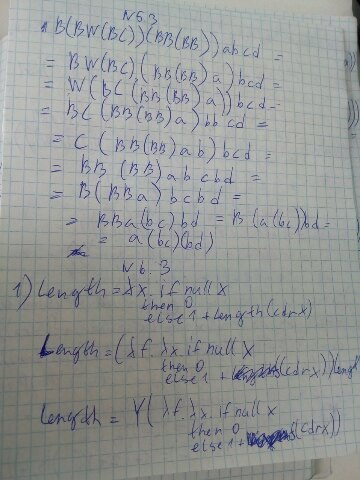 N5.3
B(BW(BC))(BB(BB))abcd =
= BW(BC)(BB(BB)a)bcd =
= W(BC(BB(BB)a))bcd =
= BC(BB(BB)a)bbcd =
= C(BB(BB)ab)bcd =
= BB(BB)abcbd =
= B(BBa)bcbd =
= BBa(bc)bd = B(a(bc))bd =
= a(bc)(bd)
N6.3
1) Length = λx. if null x
then 0
else 1 + length(cdrx)
Length = (λf. λx. if null x
then 0
else 1 + (cdrx)) length
length = Y(λf. λx. if null x
then 0
else 1 + (cdrx))